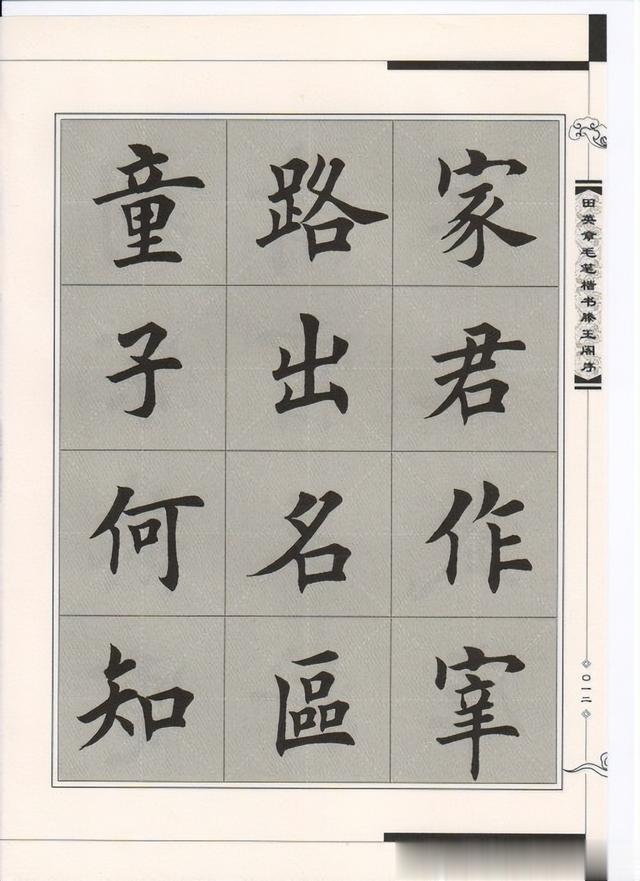 家君作宰
路出名區
童子何知
田英章毛笔楷书滕王阁序
〇一二